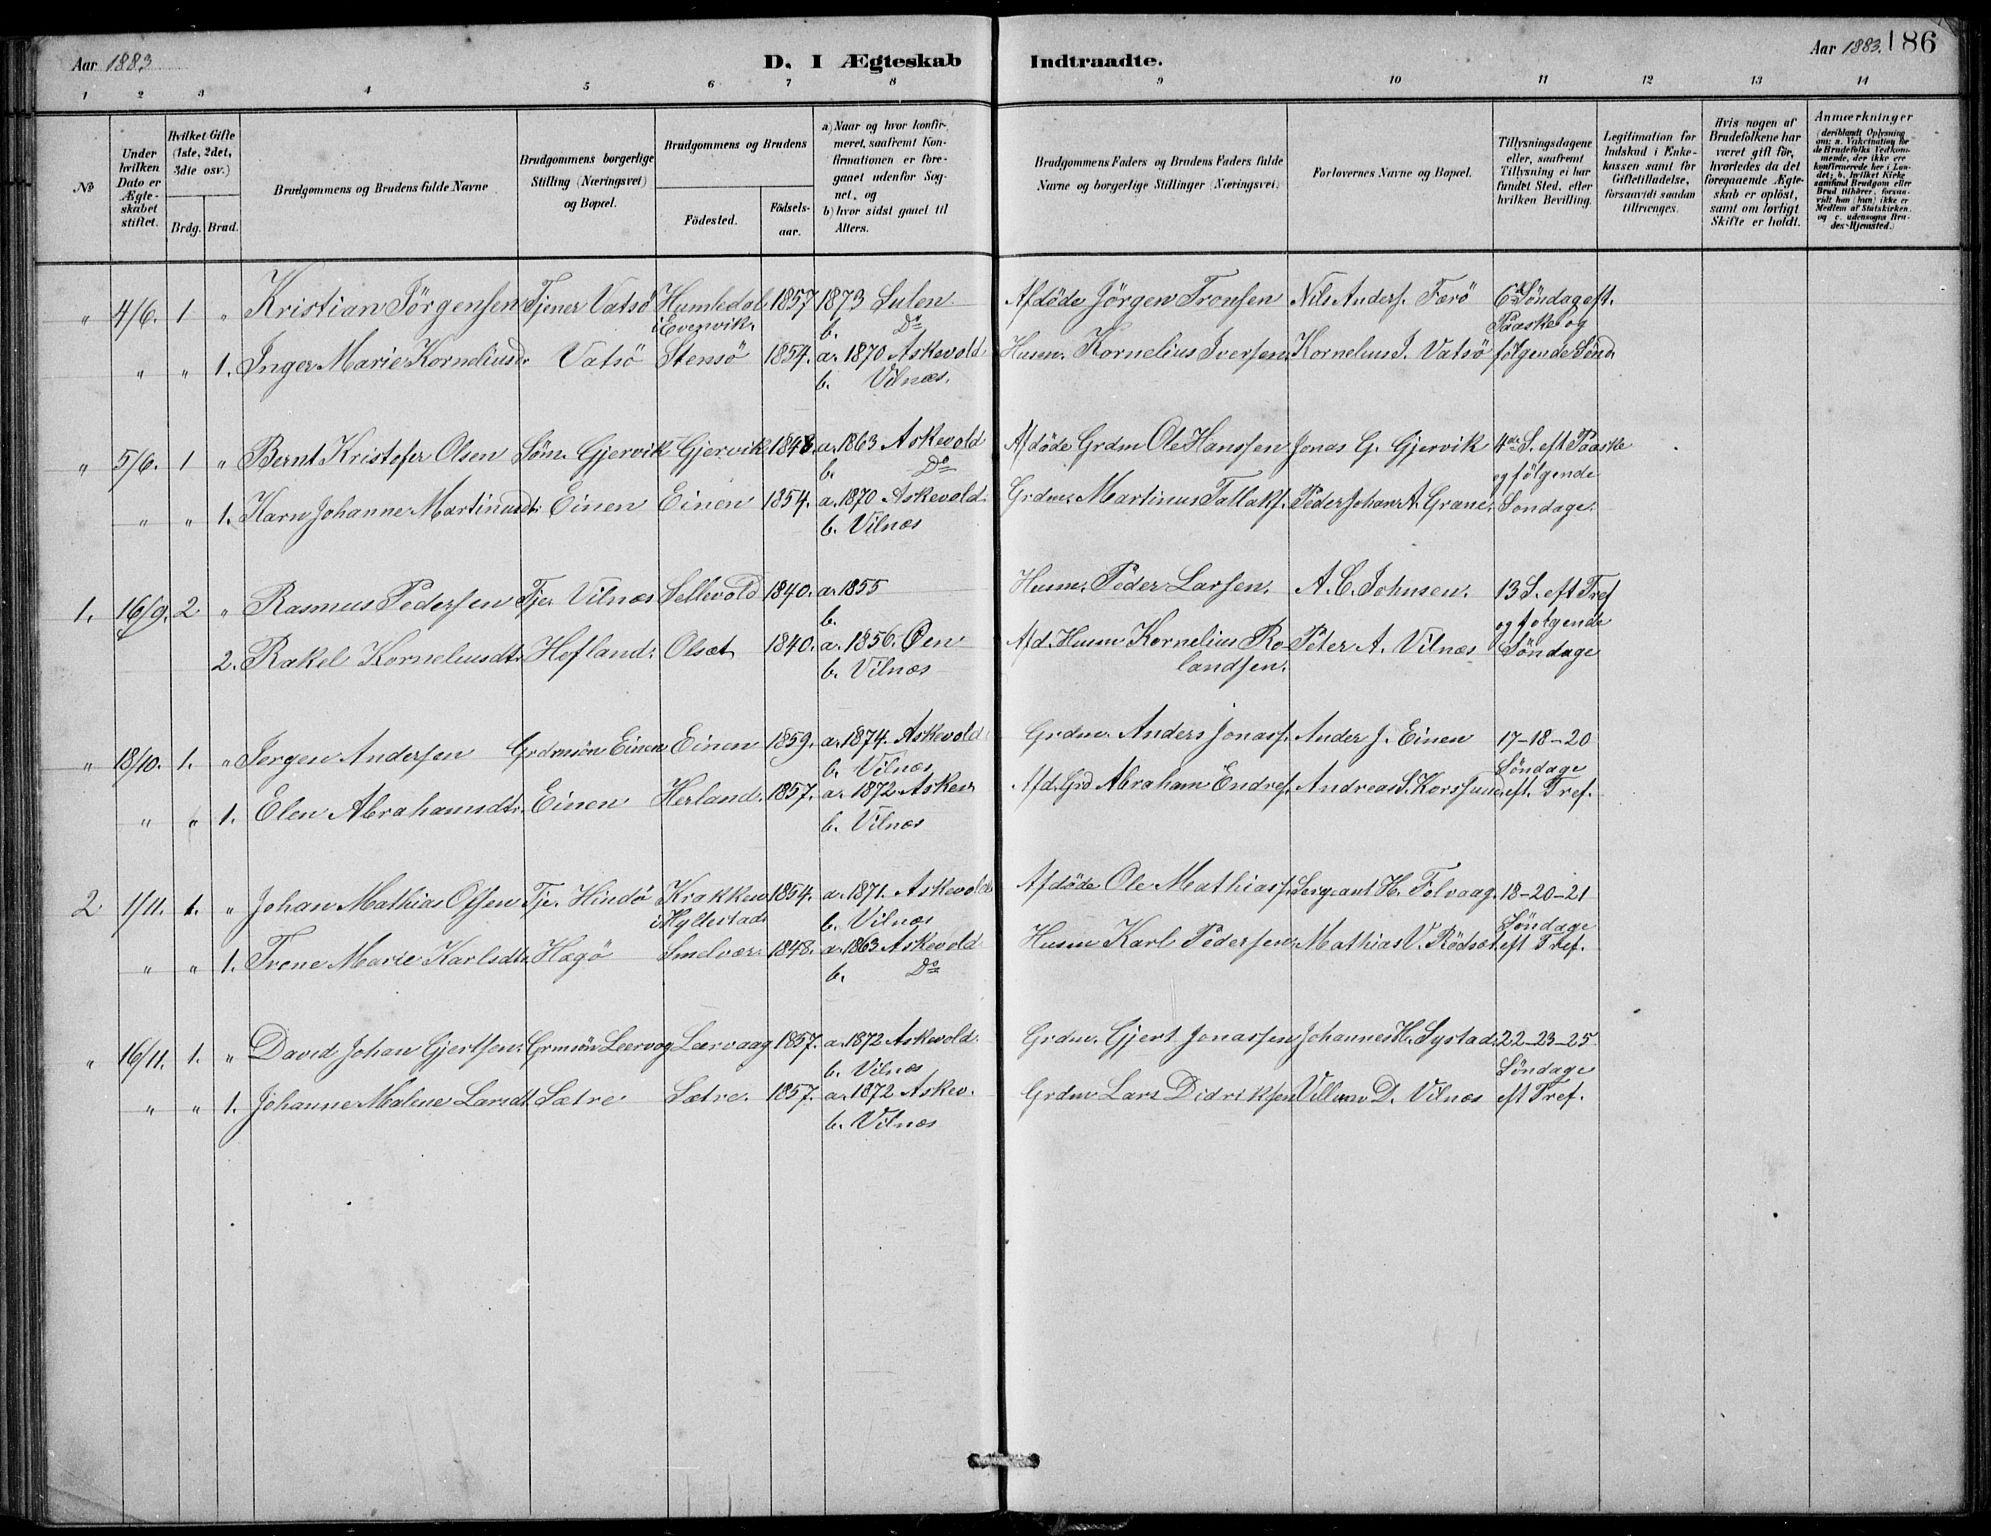 Aar 1883
D. I Ægteskab Indtraadte.
Aar 1883. 186
1 2 3 4 5 6 7 8 9 10 11 12 13 14
№
Under hvilken Dato er Ægteskabet stiftet.
Hvilket Gifte (1ste, 2det, 3die osv.)
Brdg. Brud.
Brudgommens og Brudens fulde Navne
Brudgommens borgerlige Stilling (Næringsvei) og Bopæl.
Brudgommens og Brudens
Fødested.
Fødselsaar.
a) Naar og hvor konfirmeret, saafremt Konfirmationen er foregaaet udenfor Sognet, og
b) hvor sidst gaaet til Alters.
Brudgommens Faders og Brudens Faders fulde Navne og borgerlige Stillinger (Næringsvei)
Forlovernes Navne og Bopæl.
Tillysningsdagene eller, saafremt Tillysning ei har fundet Sted, efter hvilken Bevilling.
Legitimation for Indskud i Enkekassen samt for Giftetilladelse, forsaavidt saadan tiltrænges.
Hvis nogen af Brudefolkene har været gift før, hvorledes da det foregaaende Ægteskab er opløst, samt om lovligt Skifte er holdt.
Anmærkninger
(deriblandt Oplysning om: a. Vakcination for de Brudefolks Vedkommende, der ikke ere konfirmerede her i Landet; b. hvilket Kirkesamfund Brudgom eller Brud tilhører, forsaavidt han (hun) ikke er Medlem af Statskirken, og c. udensogns Brudes Hjemsted.)
" 4/6. 1 " Kristian Jörgensen Tjener Vatsö Humledal i Evenvik. 1857 1873 Sulen b. Do Afdöde Jörgen Tronsen Nils Anders. Færö 6te Söndag eft. Paaske og
" " 1. Inger Marie Korneliusd. Vatsö Stensö 1854. a. 1870 Askevold b. Vilnæs. Husm. Kornelius Iversen Kornelius J. Vatsö følgende Sönd
" 5/6. 1 " Bernt Kristofer Olsen Söm. Gjervik Gjervik 1848. a. 1863 Askevold b. Do Afdöde Grdm Ole Hanssen Jonas G. Gjervik 4de S. eft Paaske og følgende
" " 1. Karn Johanne Martinusdt. Einen Einen 1854. a. 1870 Askevold. b. Vilnæs Grdm. Martinus Tallaks. Peder Johan A. Grane. Söndage.
1. 16/9. 2 " Rasmus Pedersen Tje. Vilnæs Sellevold 1840. a. 1855 b. Husm. Peder Larsen. A. C. Johnsen. 13 S. eft Tref og følgende
2. Rakel Korneliusdt. Hofland. Olset 1840. a. 1856. Øen b. Vilnæs Afd. Husm Kornelius Rolandsen. Peter A. Vilnæs Söndage
" 18/10. 1. " Jørgen Andersen Grdmsön Einen Einen 1859. a. 1874. Askevold b. Vilnæs Grdm. Anders Jonass. Ander J. Einen 17-18-20 Söndage
" " 1. Elen Abrahamsdt. Einen Herland. 1857. a. 1872 Askev b. Vilnæs Afd. Grd Abraham Endres. Andreas S. Korssund eft. Tref.
2 1/11. 1. " Johan Mathias Olsen Tje. Hindö Krakken i Hyllestad 1854. a. 1871. Askevold b. Vilnæs Afdöde Ole Mathias. Sergeant H. Folvaag. 18-20-21 Söndage
" " 1. Trene Marie Karlsdt. Hægö Smelvær. 1848. a. 1863 Askevold b. Do Husm Karl Pedersen. Mathias V. Rödset. eft Tref.
" 16/11. 1. " David Johan Gjertsen. Grmsön Leervog Lærvaag 1857. a. 1872 Askevold. b. Vilnæs Grdm. Gjert Jonassen Johannes H. Systad. 22-23-25 Söndage
" " 1. Johanne Malene Larsdt. Sætre Sætre. 1857. a. 1872 Askev. b. Vilnæs Grdm Lars Didriksen Villum D. Vilnæs eft Tref.